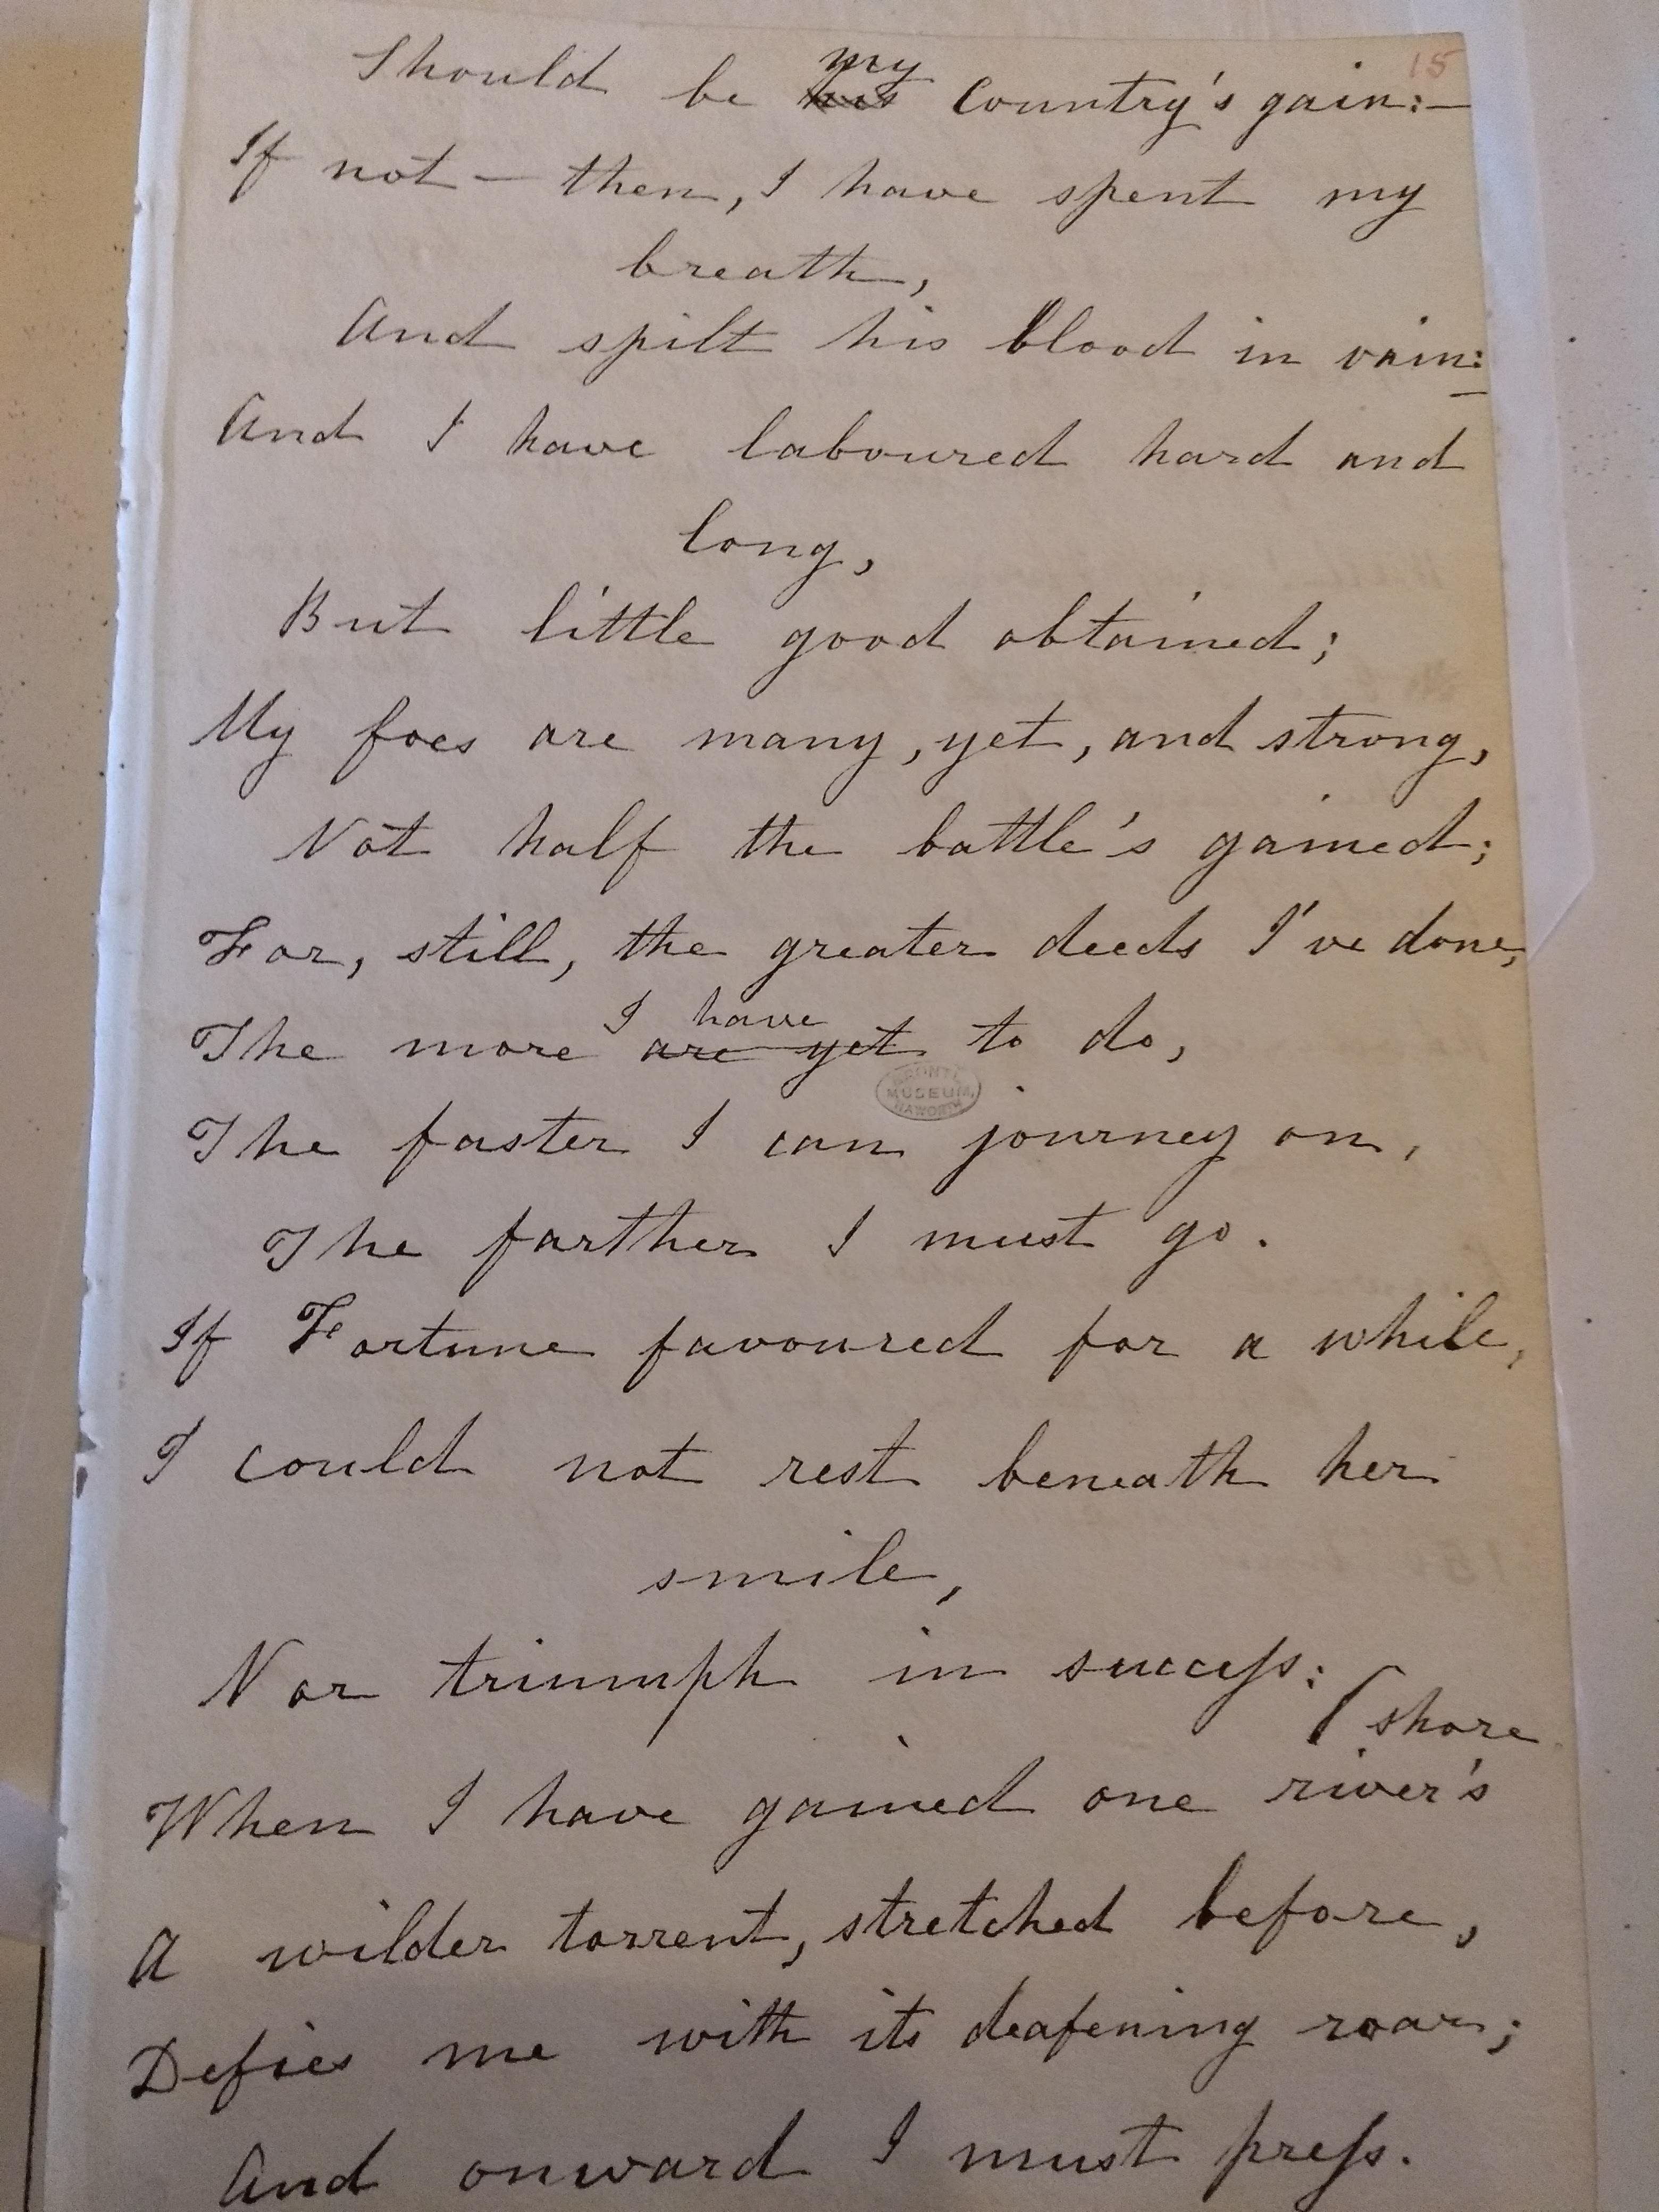 15
my
Should be his Country's gain:—
If not — then, I have spent my
breath,
And spilt his blood in vain:—
And I have laboured hard and
long,
But little good obtained;
My foes are many, yet, and strong,
Not half the battle's gained;
For, still, the greater deeds I've done,
I have
The more are yet to do,
BRONTE
MUSEUM,
HAWORTH
The faster I can journey on,
The farther I must go.
If Fortune favoured for a while,
I could not rest beneath her
smile,
Nor triumph in succeſs:
[shore
When I have gained one river's
A wilder torrent, stretched before,
Defies me with its deafening roar;
And onward I must preſs.